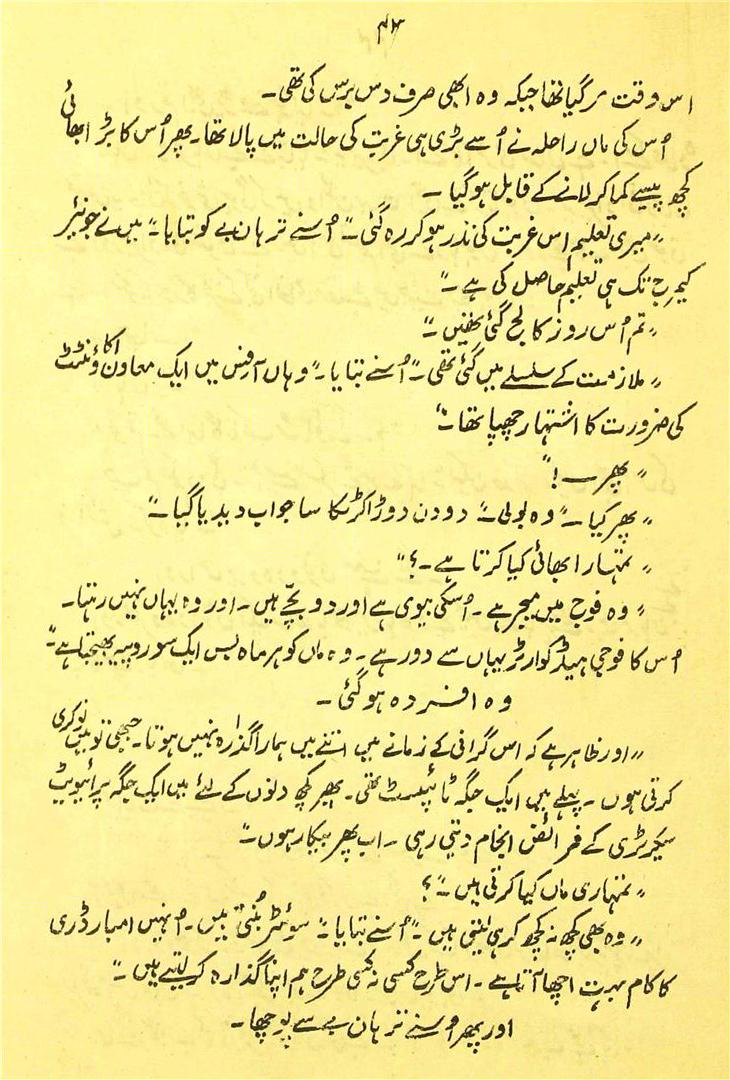 ۴۳
اس وقت مر گیا تھا جبکہ وہ ابھی صرف دس برس کی تھی۔
اُس کی ماں راحلہ نے اُسے بڑی ہی غربت کی حالت میں پالا تھا۔ پھر اُس کا بڑا بھائی
کچھ پیسے کما کر لانے کے قابل ہو گیا۔
"میری تعلیم اس غربت کی نذر ہو کر رہ گئی۔" اُسنے تر ہان بے کو بتایا۔ "میں نے جونیئر
کیمرج تک ہی تعلیم حاصل کی ہے۔"
"تم اُس روز کالج گئی تھیں۔"
"ملازمت کے سلسلے میں گئی تھی۔" اُسنے بتایا۔ "وہاں آفس میں ایک معاون اکاؤنٹنٹ
کی ضرورت کا اشتہار چھپا تھا۔"
"پھر — !"
"پھر کیا۔" وہ بولی۔ "دو دن دوڑا کر ٹکا سا جواب دیدیا گیا۔"
"تمہارا بھائی کیا کرتا ہے۔؟"
"وہ فوج میں میجر ہے۔ اُسکی بیوی ہے اور دو بچّے ہیں۔ اور وہ یہاں نہیں رہتا۔
اُس کا فوجی ہیڈ کوارٹر یہاں سے دور ہے۔ وہ ماں کو ہر ماہ بس ایک سو روپیہ بھیجتا ہے۔"
وہ افسردہ ہو گئی۔
"اور ظاہر ہے کہ اس گرانی کے زمانے میں اتنے میں ہمارا گذارہ نہیں ہوتا۔ جبھی تو میں نوکری
کرتی ہوں۔ پہلے میں ایک جگہ ٹائپسٹ تھی۔ پھر کچھ دنوں کے لئے میں ایک جگہ پرائیویٹ
سیکرٹری کے فرائض انجام دیتی رہی۔ اب پھر بیکار ہوں۔"
"تمہاری ماں کیا کرتی ہیں۔"؟
"وہ بھی کچھ نہ کچھ کر ہی لیتی ہیں۔" اُسنے بتایا۔ "سوئٹر بُنتی ہیں۔ اُنہیں امبارڈری
کا کام بہت اچھا آتا ہے۔ اس طرح کسی نہ کسی طرح ہم اپنا گذارہ کر لیتے ہیں۔"
اور پھر اُسنے تر ہان بے سے پوچھا۔